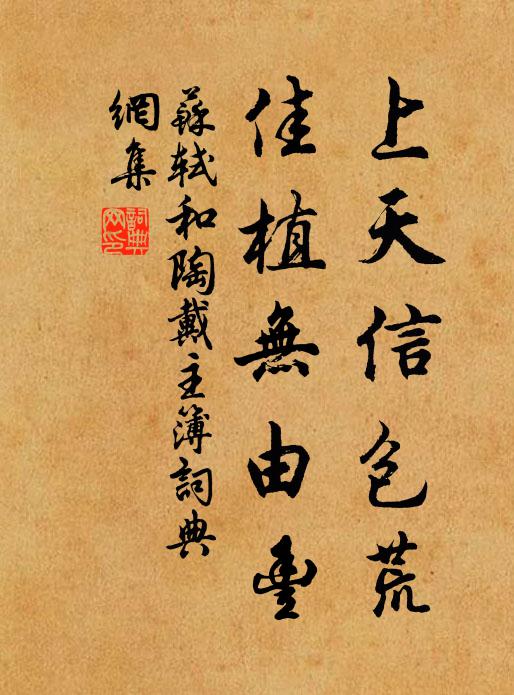 上天信包荒
佳植無由豐
蘇軾和陶戴主簿詞典
網集
詞典網印